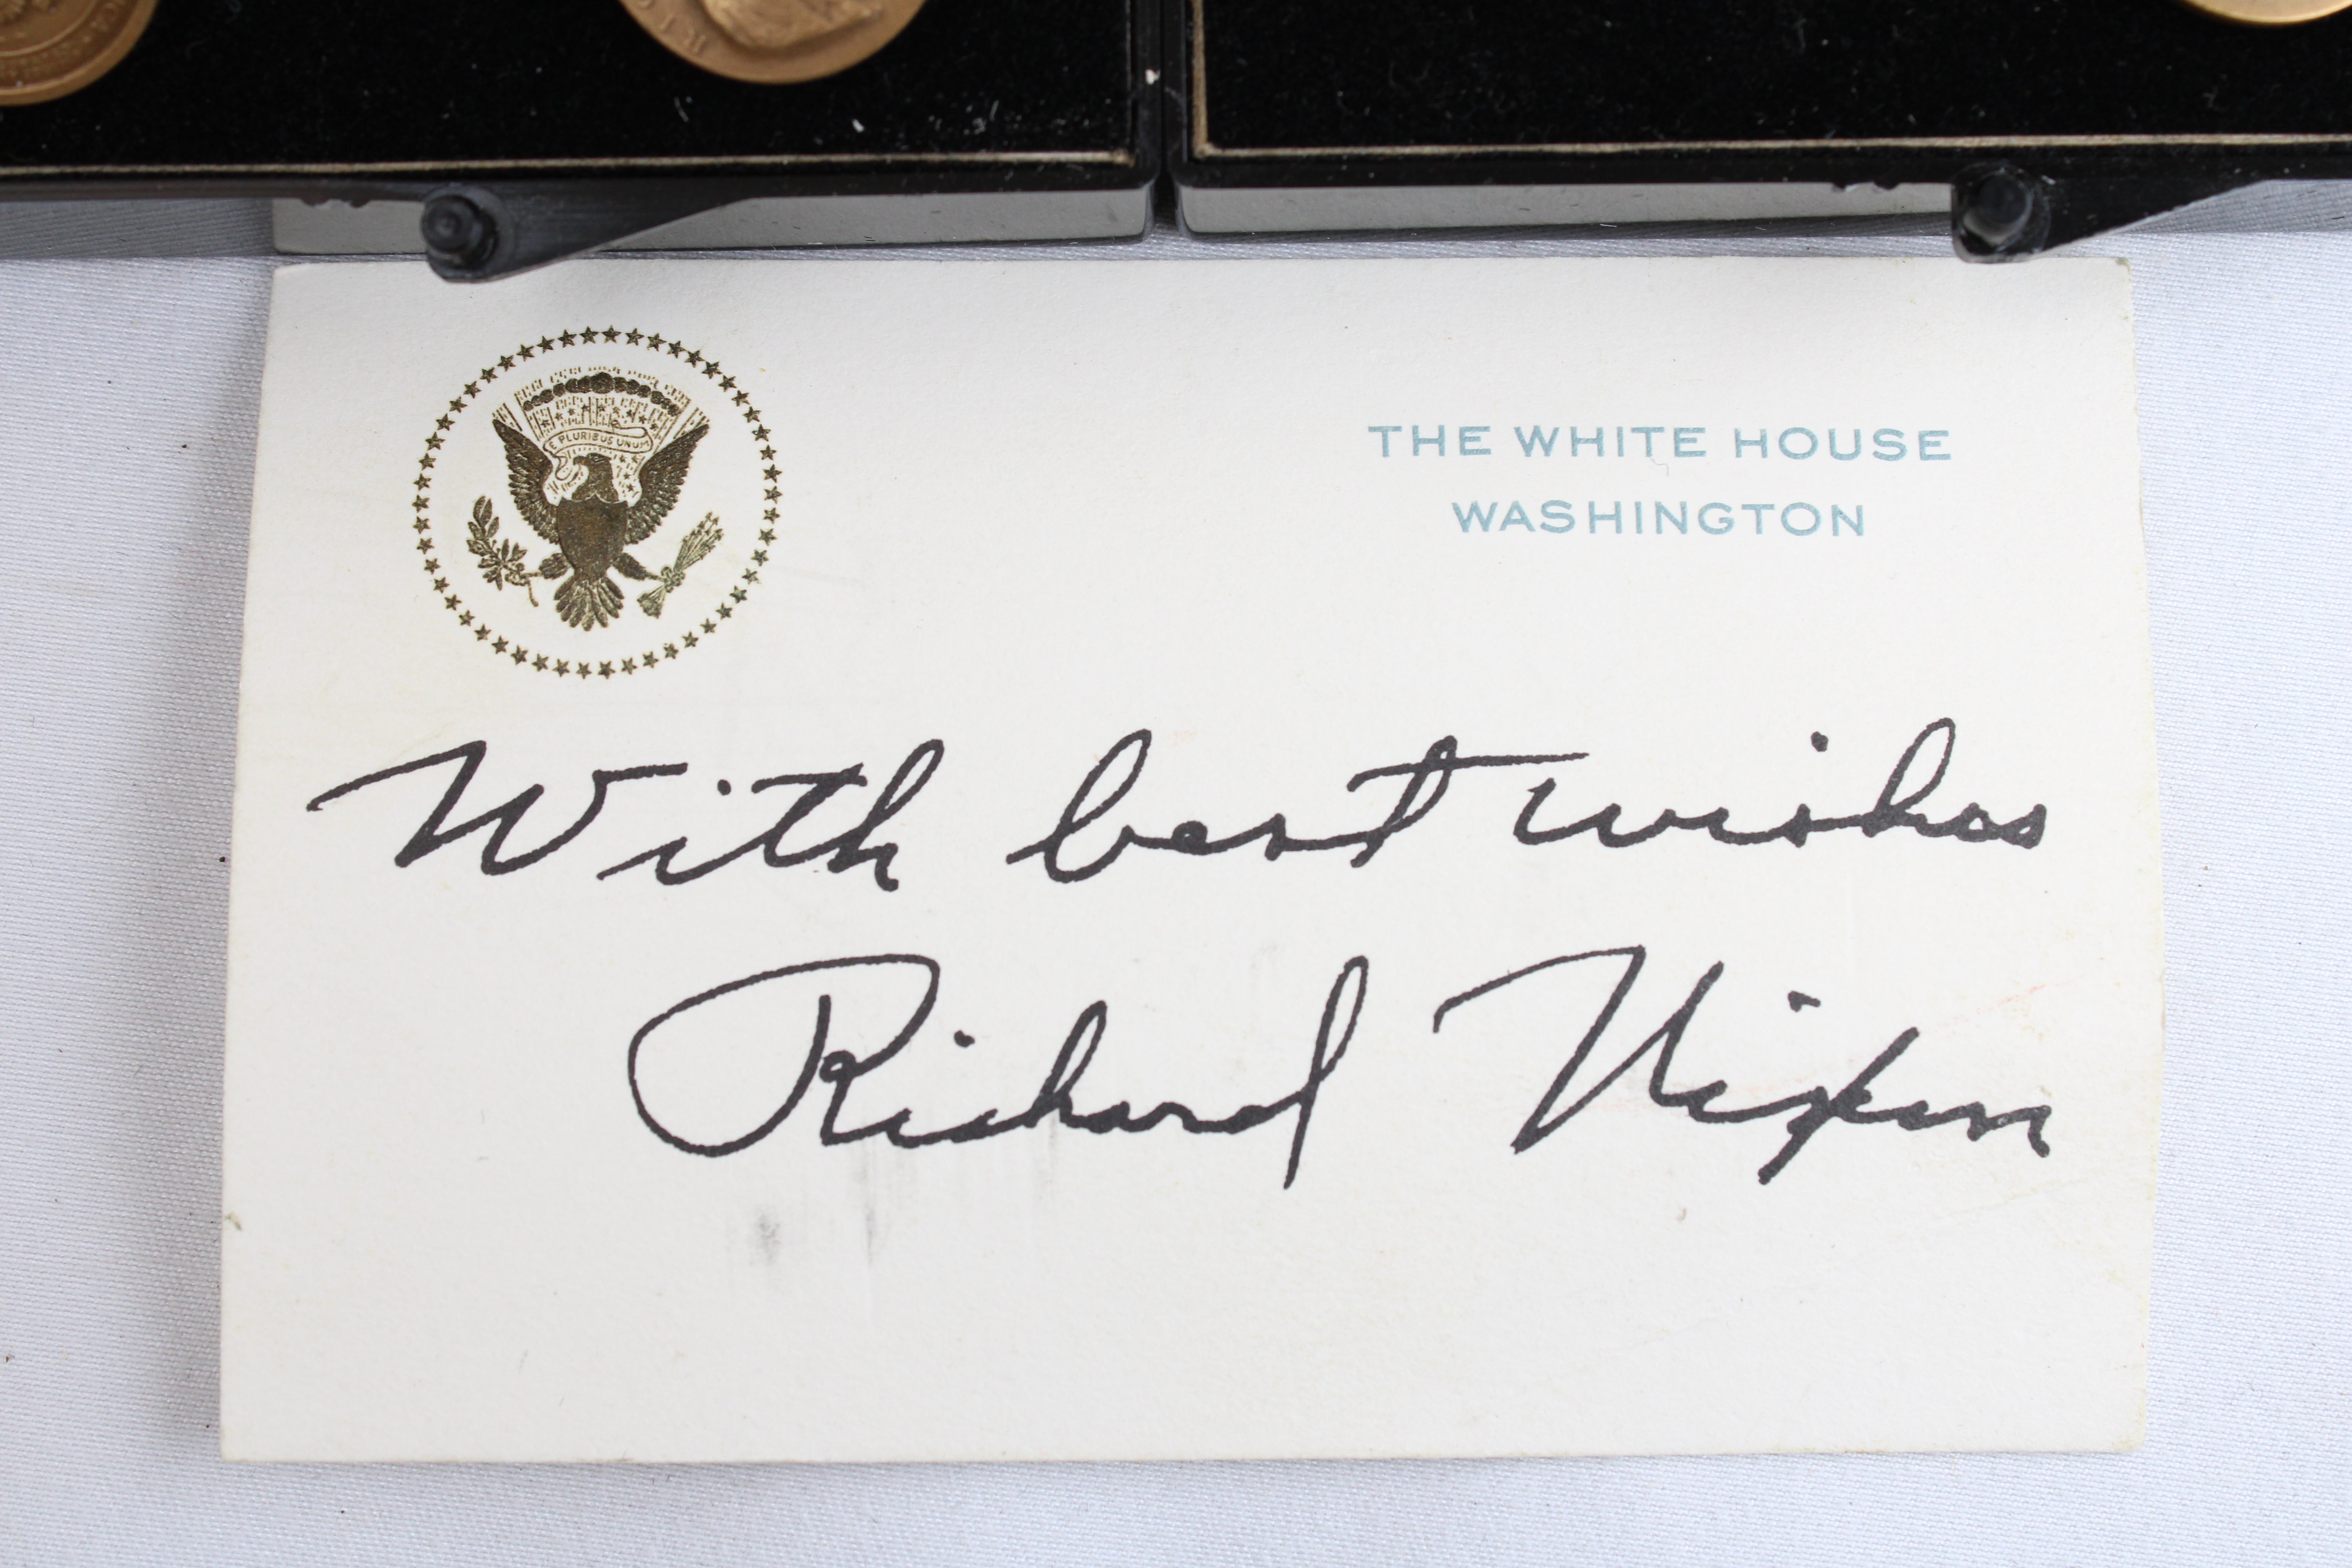 E PLURIBUS UNUM
THE WHITE HOUSE
WASHINGTON
With best wishes
Richard Nixon